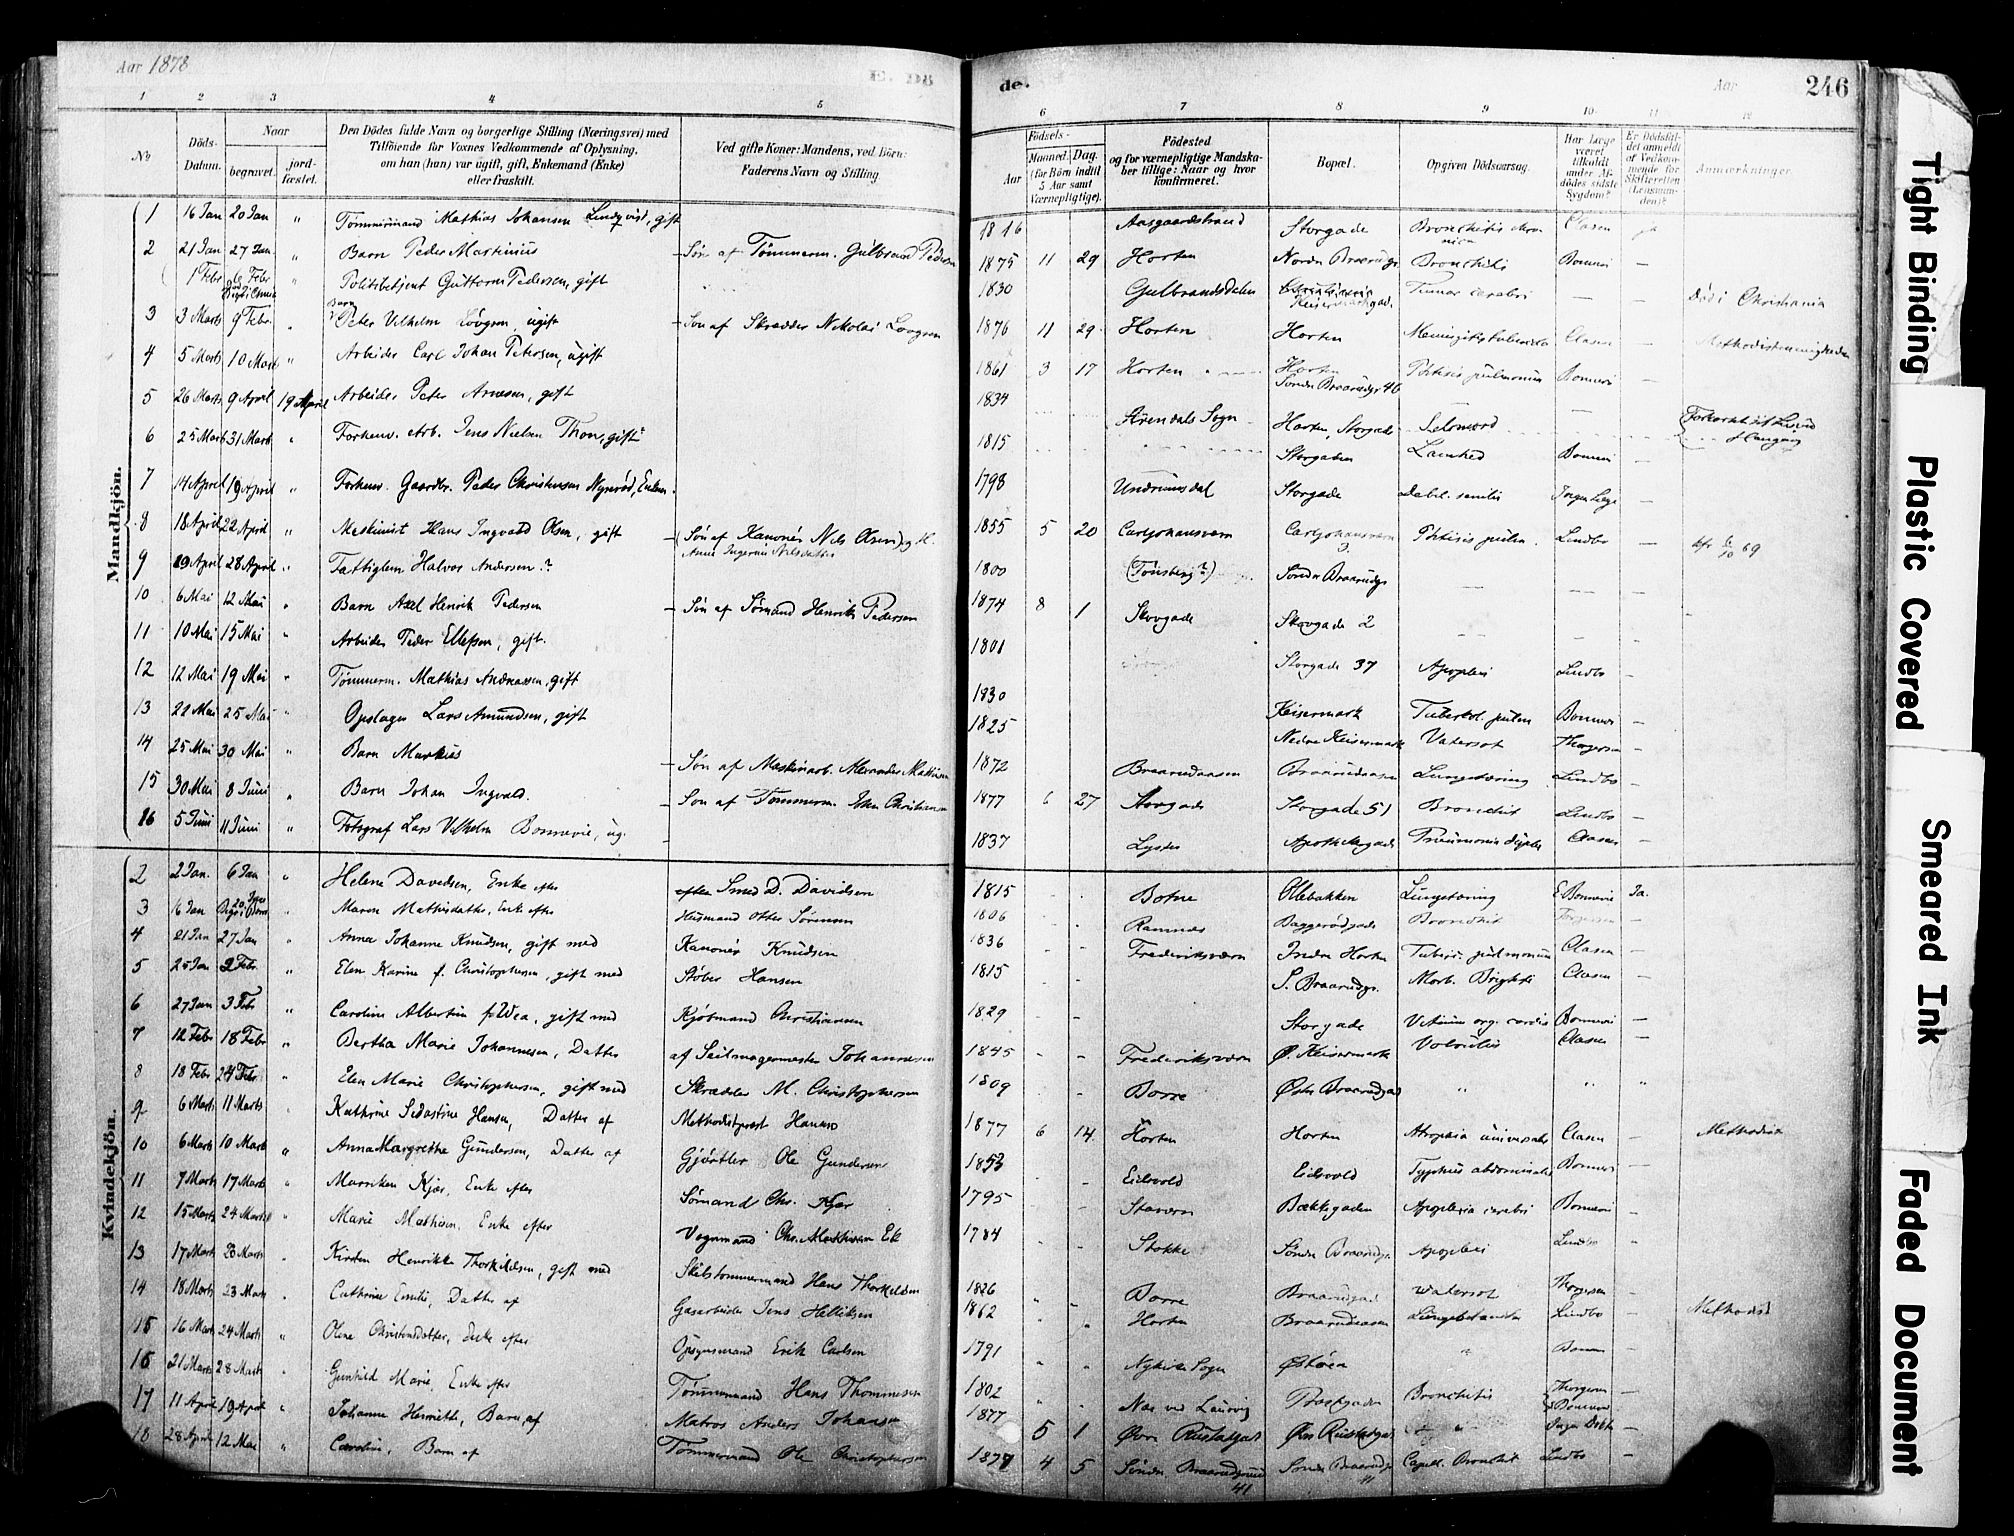 Aar 1878
de.
Aar
246
1 2 3 4 5 6 7 8 9 10 11 12
No
Döds-Datum.
Naar
begravet.
jord-fæstet.
Den Dödes fulde Navn og borgerlige Stilling (Næringsvei) med
Tilföiende for Voxnes Vedkommende af Oplysning,
om han (hun) var ugift, gift, Enkemand (Enke)
eller fraskilt.
Ved gifte Koner: Mandens, ved Börn:
Faderens Navn og Stilling.
Födsels-
Aar
Maaned. Dag.
(for Börn indtil
5 Aar samt
Værnepligtige).
Födested
og for værnepligtige Mandska-
ber tillige: Naar og hvor
konfirmeret.
Bopæl.
Opgiven Dödsaarsag.
Har Læge
været
tilkaldt
under Af-
dödes sidste
Sygdom?
Er Dödsfal-
det anmeldt
af Vedkom-
mende for
Skifteretten
(Lensman-
den)?
Anmærkninger.
Mandkjön.
1 16 Jan 20 Jan " Tømmermand Mathias Johansen Lindqvist, gift 1816 Aasgaardstrand Storgade Bronchitis Clasen ja
2 21 Jan 27 Jan " Barn Peder Martinius - Søn af Tømmerm. Gulbrand Pedersen 1875 11 29 Horten Bronchitis Bonnevi -
1 Febr 6 Febr " Politibetjent Guttorm Pedersen, gift 1830 Gulbrandsdalen Christiania Tumor cerebri - Död i Christiania
3 3 Marts 9 Febr. " Barn Peter Vilhelm Lövgren, ugift - Søn af Skrædder Nikolai Lovgren 1876 11 29 Horten Horten Clasen - Methodistmenigheden
4 5 Marts 10 Marts " Arbeider Carl Johan Petersen, ugift 1861 3 17 Horten Horten Phtisis pulmonum Bonnevi -
5 26 Marts 9 April 19 April Arbeider Peter Arnesen, gift 1834 Arendals Sogn Horten, Storgade Selvmord -
Søndr Braarudgd 46
6 25 Marts 31 Marts " Forhenv. Arb. Jens Nielsen Thon, gift 1815 Storgaden Bonnevi -
7 14 April 19 April " Forhenv. Gaardbr. Peder Christensen Nyerød, Enkem. 1798 Undrumsdal Storgade Debil. senilis Ingen Læge -
8 18 April 22 April " Maskinist Hans Ingvald Olsen, gift - Søn af Kanonér Nils Olsen og H. Anne Ingerine Nilsdatter 1855 5 20 Carljohansværn Carljohansværn 3 Phtisis pulm. Lindbo - kfr 6/10 69
9 19 April 28 April " Fattiglem Halvor Andersen ? 1800 (Tönsberg?) Søndr Braarudgd - - -
10 6 Mai 12 Mai " Barn Axel Henrik Pedersen - Søn af Sømand Henrik Pedersen 1874 8 1 Skovgade Skovgade 2 - -
11 10 Mai 15 Mai " Arbeider Peder Ellefsen, gift. 1801 Storgade 37 Apoplexi Lindbo -
12 12 Mai 19 Mai " Tømmerm. Mathias Andreassen, gift 1830 Keisermark Tuberkel. pulm Bonnevi -
13 21 Mai 25 Mai " Opslager Lars Amundsen, gift 1825 Nedre Keisermark Vatersot Thorgersen -
14 25 Mai 30 Mai " Barn Markus - Søn af Maskinarb. Alexander Mathisen 1872 Braarudaasen Braarudaasen Lungetæring Lindbo -
15 30 Mai 8 Juni " Barn Johan Ingvald. Søn af Tömmerm. John Christiansen 1877 6 27 Storgade Storgade 51 Bronchit Lindbo -
16 5 Juni 11 Juni " Fotograf Lars Vilhelm Bonnevie, ug. - 1837 Lyster Apothekergade Pneumonia duplex Clasen -
Kvindekjön.
2 2 Jan. 6 Jan " Helene Davidsen, Enke efter efter Smed D. Davidsen 1815 Botne Ollebakken Lungetæring E Bonnevie Ja.
3 16 Jan 20 Jan " Maren Mathisdatter, Enke efter Husmand Otter Sørensen 1806 Ramnæs Baggerødgade Bronchit Torgersen -
4 21 Jan 27 Jan " Anna Johanne Knudsen, gift med Kanonér Knudsen 1836 Frederiksværn Indre Horten Tuberc. pulmonum Clasen -
5 25 Jan 2 Febr " Elen Karine f. Christophersen, gift med Støber Hansen 1815 S. Braarudgd. Morb. Brightii Clasen -
6 27 Jan 3 Febr " Caroline Albertine f. Wea, gift med Kjøbmand Christiansen 1829 Storgade Vitium org. cordis Bonnevi -
7 12 Febr 18 Febr " Bertha Marie Johannesen, Datter af Seilmagermester Johannesen 1845 Frederiksværn Ø. Keisermark Volvulus Clasen -
8 18 Febr 24 Febr " Elen Marie Christophersen, gift med Skrædder M. Christophersen 1809 Borre Østr Braarudgad " " "
9 6 Marts 11 Marts " Kathrine Sebastine Hansen, Datter af Methodistpræst Hansen 1877 6 14. Horten Horten Atrophia universalis Clasen - Methodist
10 6 Marts 10 Marts " Anna Margrethe Gundersen, Datter af Gjørtler Ole Gundersen 1853 Eidsvold Eidsvold Typhus abdominalis Bonnevi -
11 7 Marts 17 Marts " Marviken Kjær, Enke efter Sømand Chr. Kjær 1795 Stavern Bækkegaden Apoplexia cerebri Bonnevi -
12 15 Marts 24 Marts " Marie Mathisen, Enke efter Vognmand Chr. Mathisen Ek 1784 Stokke Søndr Braarudgd. Apoplexi Lindbo "
13 17 Marts 23 Marts " Kirsten Henrikke Thorkildsen, gift med Skibstømmermand Hans Thorkildsen 1826 Borre Braarudgad Watersot Thorgersen -
14 18 Marts 23 Marts " Cathrine Emilie, Datter af Gasarbeider Jens Helliksen 1862 Horten Braarudaasen Lungebetændelse Lindbo - Methodist
15 16 Marts 24 Marts " Olene Christensdatter, Enke efter Opsynsmand Erik Carlsen 1791 Nykirke Sogn Østøen " Bonnevi -
16 21 Marts 28 Marts Gunhild Marie, Enke efter Tømmermand Hans Thommesen 1802 Næs ved Laurvig Postgaden Bronchitis Thorgersen Bonnevi -
17 11 April 19 April " Johanne Henriette, Barn af Matros Anders Johansen 1877 5 1 Øvre Rustadgad Øvr Rustadgad Ingen Doktor -
18 28 April 12 Mai " Caroline, Barn af Tømmermand Ole Christophersen 1877 4 5 Søndr Braarudgad 41 Søndr Braarudgd 11 Capill. Bronchit Lindbo -
Tight Binding
Plastic Covered
Smeared Ink
Faded Document